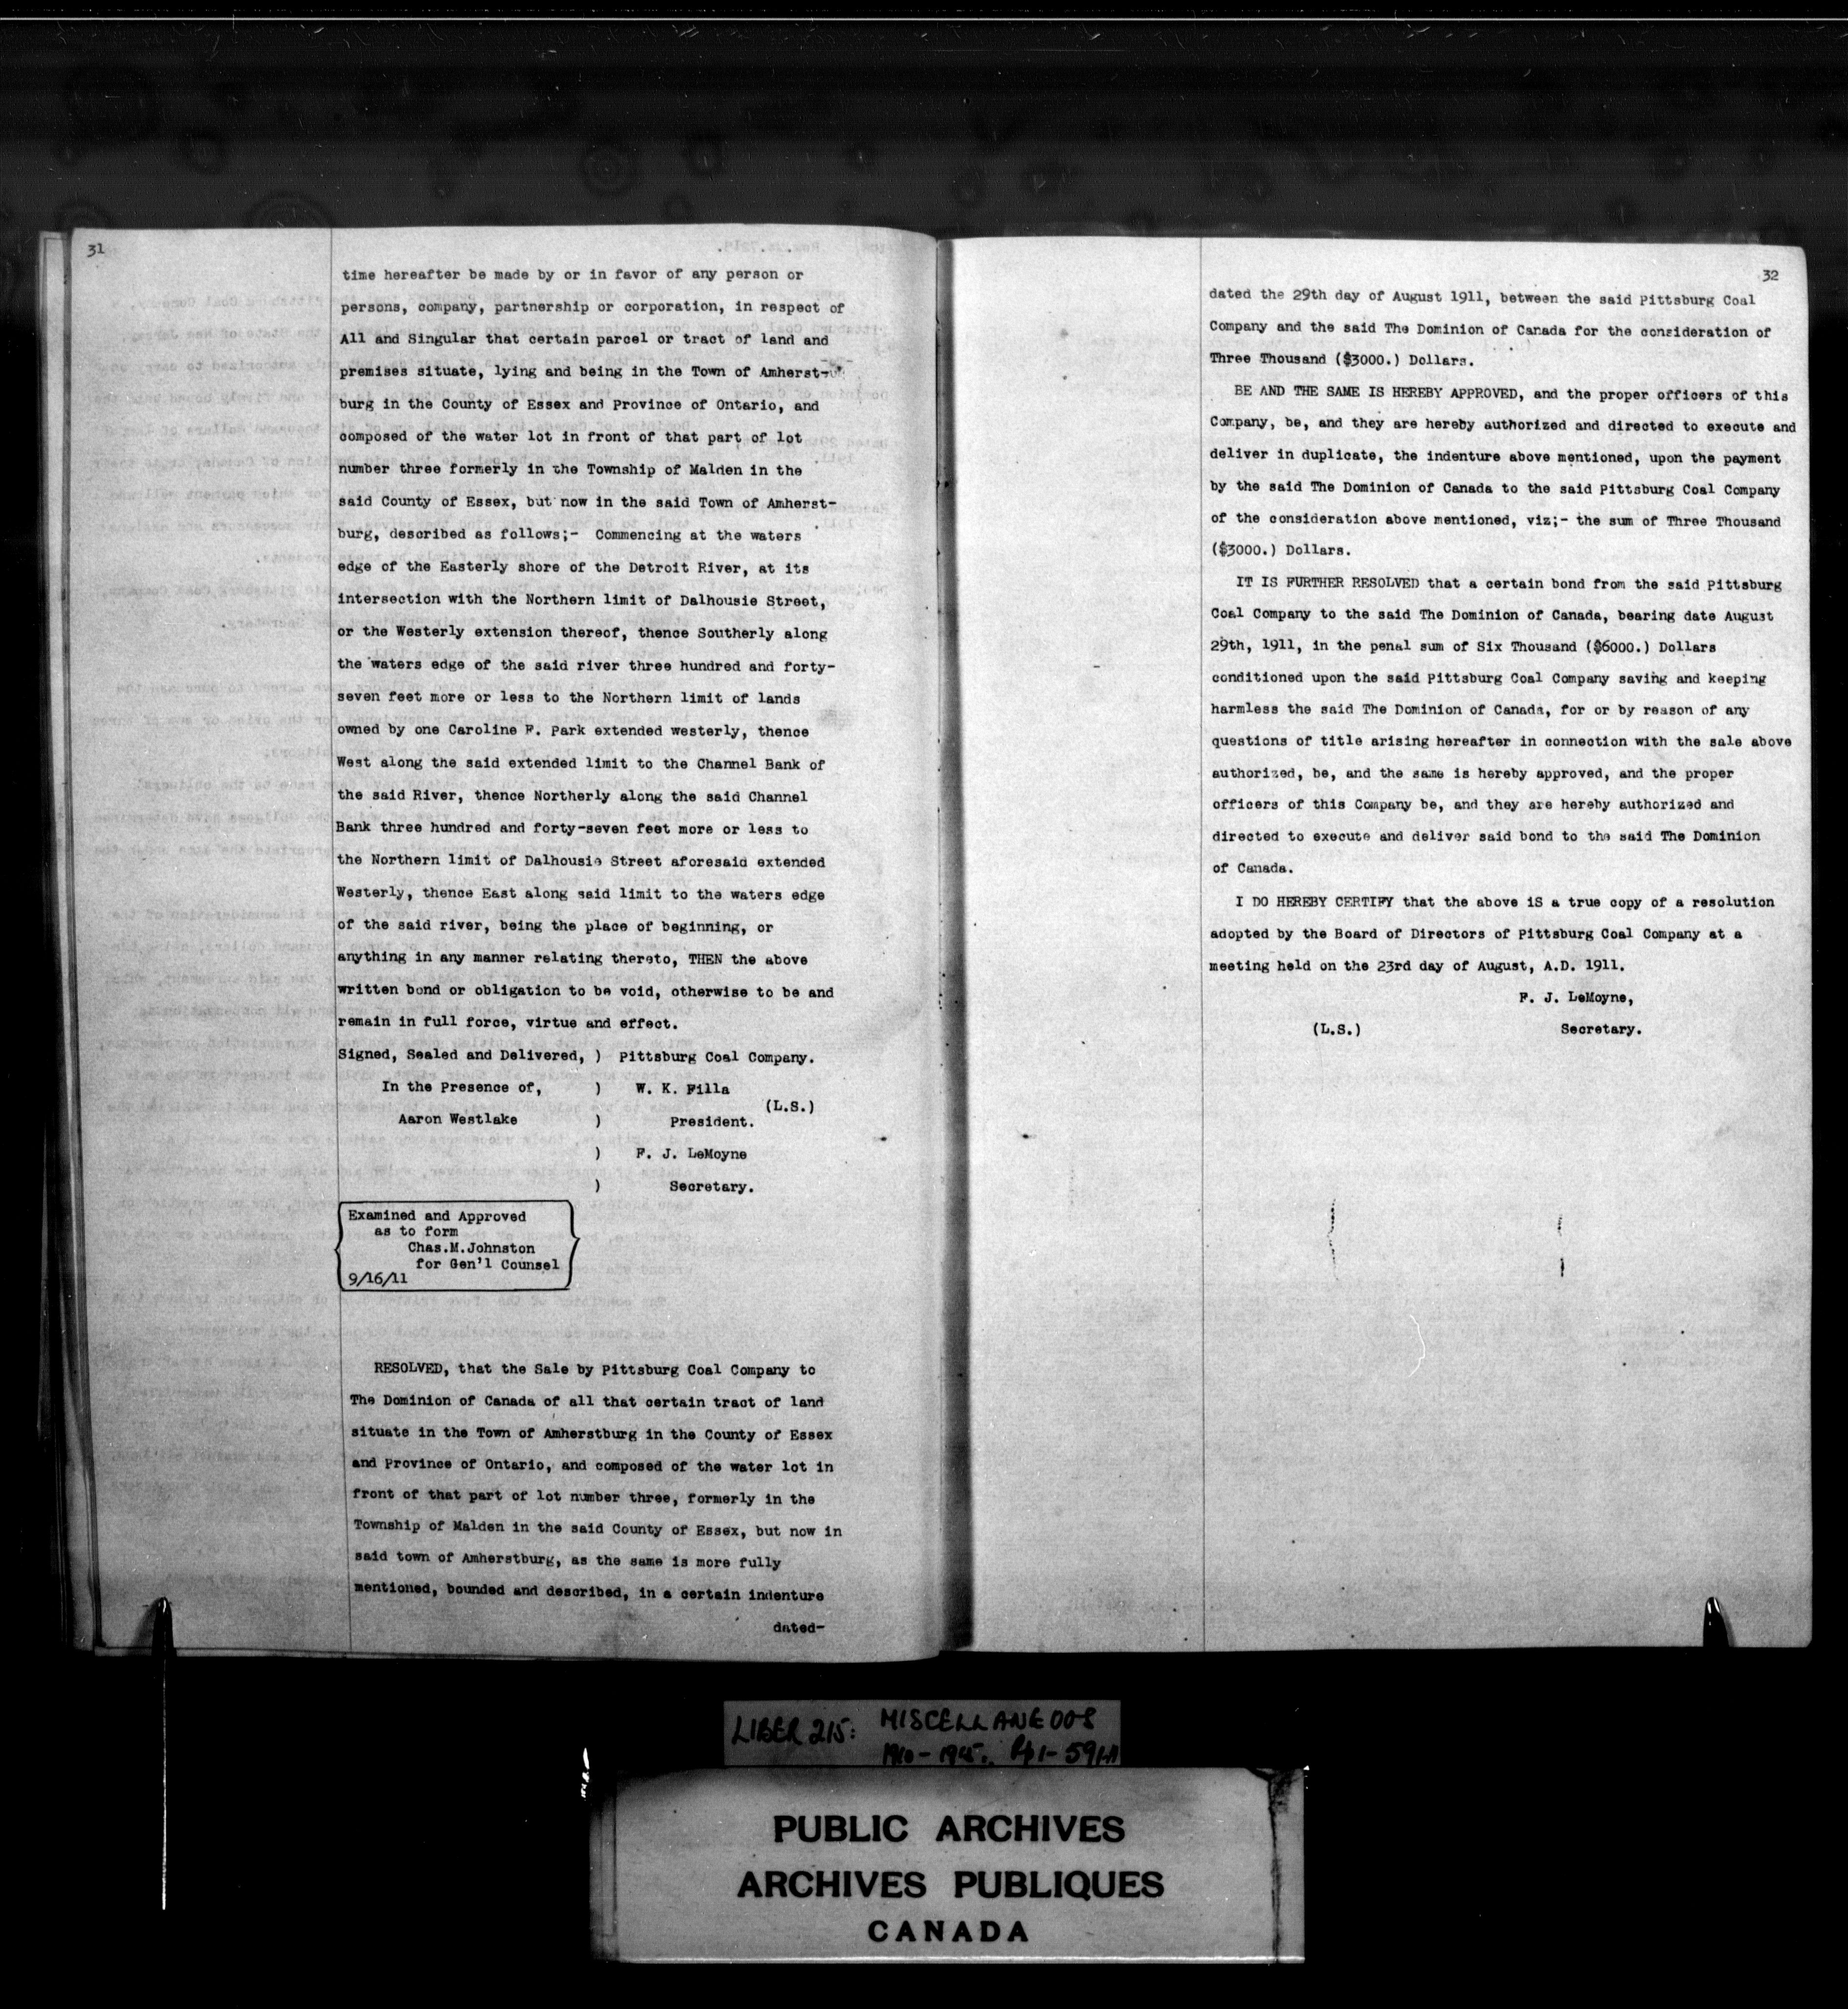 31
time hereafter be made by or in favor of any person or
persons, company, partnership or corporation, in respect of
All and Singular that certain parcel or tract of land and
premises situate, lying and being in the Town of Amherst-
burg in the County of Essex and Province of Ontario, and
composed of the water lot in front of that part of lot
number three formerly in the Township of Malden in the
said County of Essex, but now in the said Town of Amherst-
burg, described as follows;- Commencing at the waters
edge of the Easterly shore of the Detroit River, at its
intersection with the Northern limit of Dalhousie Street,
or the Westerly extension thereof, thence Southerly along
the waters edge of the said river three hundred and forty-
seven feet more or less to the Northern limit of lands
owned by one Caroline F. Park extended westerly, thence
West along the said extended limit to the Channel Bank of
the said River, thence Northerly along the said Channel
Bank three hundred and forty-seven feet more or less to
the Northern limit of Dalhousie Street aforesaid extended
Westerly, thence East along said limit to the waters edge
of the said river, being the place of beginning, or
anything in any manner relating thereto, THEN the above
written bond or obligation to be void, otherwise to be and
remain in full force, virtue and effect.
Signed, Sealed and Delivered, ) Pittsburg Coal Company.
In the Presence of, ) W. K. Filla
(L.S.)
Aaron Westlake ) President.
) F. J. LeMoyne
) Secretary.
Examined and Approved
as to form
Chas.M.Johnston
for Gen'l Counsel
9/16/11
RESOLVED, that the Sale by Pittsburg Coal Company to
The Dominion of Canada of all that certain tract of land
situate in the Town of Amherstburg in the County of Essex
and Province of Ontario, and composed of the water lot in
front of that part of lot number three, formerly in the
Township of Malden in the said County of Essex, but now in
said town of Amherstburg, as the same is more fully
mentioned, bounded and described, in a certain indenture
dated-
32
dated the 29th day of August 1911, between the said Pittsburg Coal
Company and the said The Dominion of Canada for the consideration of
Three Thousand ($3000.) Dollars.
BE AND THE SAME IS HEREBY APPROVED, and the proper officers of this
Company, be, and they are hereby authorized and directed to execute and
deliver in duplicate, the indenture above mentioned, upon the payment
by the said The Dominion of Canada to the said Pittsburg Coal Company
of the consideration above mentioned, viz;- the sum of Three Thousand
($3000.) Dollars.
IT IS FURTHER RESOLVED that a certain bond from the said Pittsburg
Coal Company to the said The Dominion of Canada, bearing date August
29th, 1911, in the penal sum of Six Thousand ($6000.) Dollars
conditioned upon the said Pittsburg Coal Company saving and keeping
harmless the said The Dominion of Canada, for or by reason of any
questions of title arising hereafter in connection with the sale above
authorized, be, and the same is hereby approved, and the proper
officers of this Company be, and they are hereby authorized and
directed to execute and deliver said bond to the said The Dominion
of Canada.
I DO HEREBY CERTIFY that the above iS a true copy of a resolution
adopted by the Board of Directors of Pittsburg Coal Company at a
meeting held on the 23rd day of August, A.D. 1911.
F. J. LeMoyne,
(L.S.) Secretary.
LIBER 215: MISCELLANEOUS
PUBLIC ARCHIVES
ARCHIVES PUBLIQUES
CANADA